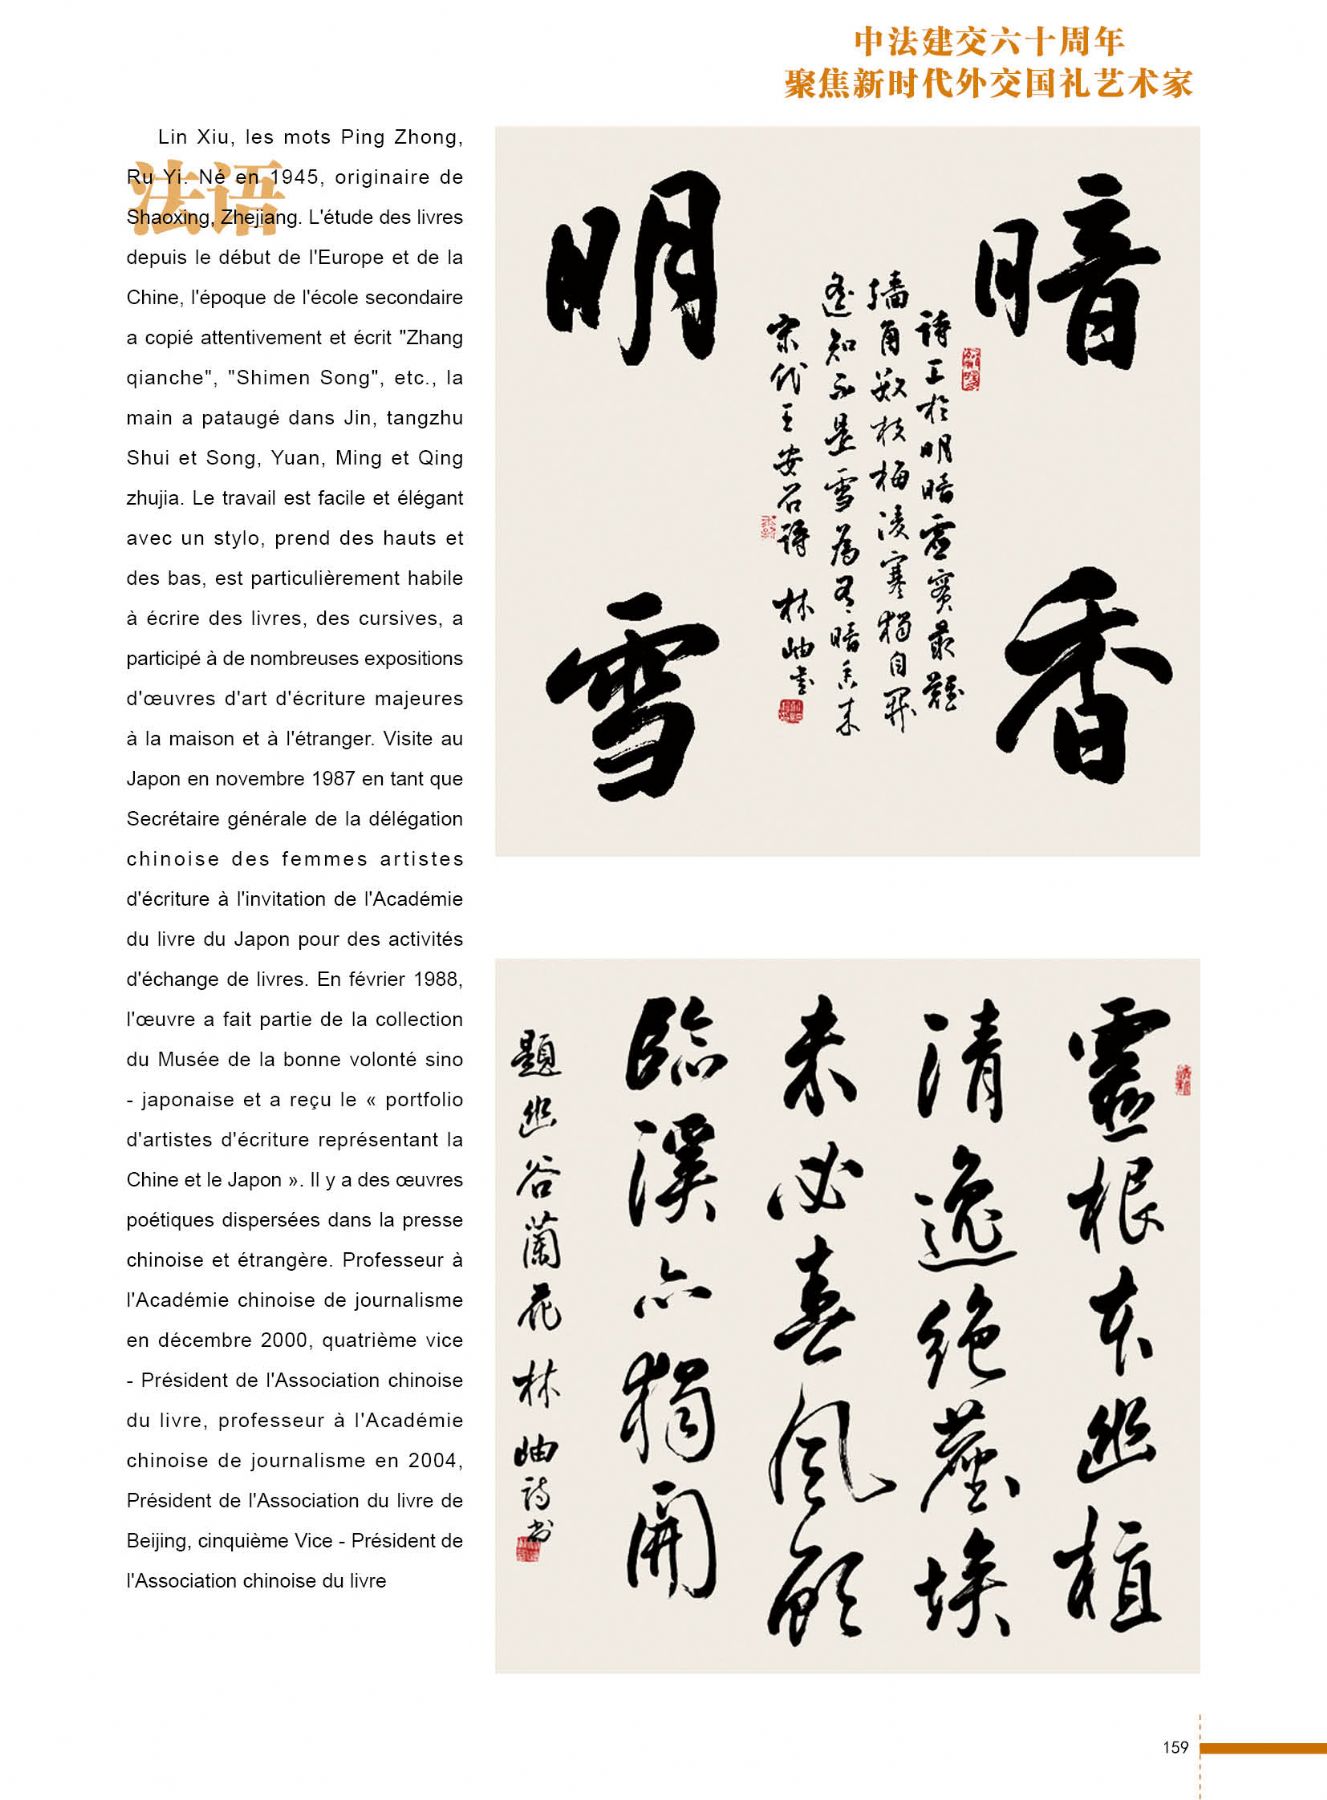 中法建交六十周年
聚焦新时代外交国礼艺术家
法语
Lin Xiu, les mots Ping Zhong,
Ru Yi. Né en 1945, originaire de
Shaoxing, Zhejiang. L'étude des livres
depuis le début de l'Europe et de la
Chine, l'époque de l'école secondaire
a copié attentivement et écrit "Zhang
qianche", "Shimen Song", etc., la
main a pataugé dans Jin, tangzhu
Shui et Song, Yuan, Ming et Qing
zhujia. Le travail est facile et élégant
avec un stylo, prend des hauts et
des bas, est particulièrement habile
à écrire des livres, des cursives, a
participé à de nombreuses expositions
d'œuvres d'art d'écriture majeures
à la maison et à l'étranger. Visite au
Japon en novembre 1987 en tant que
Secrétaire générale de la délégation
chinoise des femmes artistes
d'écriture à l'invitation de l'Académie
du livre du Japon pour des activités
d'échange de livres. En février 1988,
l'œuvre a fait partie de la collection
du Musée de la bonne volonté sino
- japonaise et a reçu le « portfolio
d'artistes d'écriture représentant la
Chine et le Japon ». Il y a des œuvres
poétiques dispersées dans la presse
chinoise et étrangère. Professeur à
l'Académie chinoise de journalisme
en décembre 2000, quatrième vice
- Président de l'Association chinoise
du livre, professeur à l'Académie
chinoise de journalisme en 2004,
Président de l'Association du livre de
Beijing, cinquième Vice - Président de
l'Association chinoise du livre
暗香
明雪
詩工於明暗虛實最難
墻角數枝梅凌寒獨自開
遙知不是雪為有暗香來
宋代王安石詩 林岫書
靈根本幽植
清逸絕塵埃
未必喜風顧
臨溪亦獨開
題幽谷蘭花 林岫詩書
159